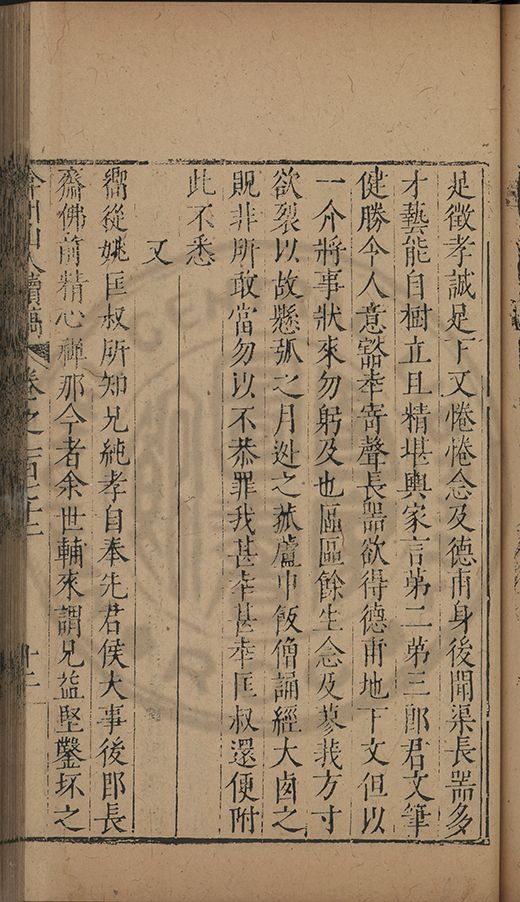 足徵孝誠足下又惓惓念及德甫身後聞渠長器多
才藝能自樹立且精堪輿家言第二第三郎君文筆
健勝令人意豁幸寄聲長器欲得德甫地下文但以
一介將事狀來勿躬及也區區餘生念及蓼莪方寸
欲裂以故懸弧之月迯之菰蘆中飯僧誦經大卤之
貺非所敢當勿以不恭罪我甚幸甚幸匡叔還便附
此不悉
又
嚮從姚匡叔所知兄純孝自奉先君侯大事後郎長
齋佛前精心禪那今者余世輔來謂兄益堅鑿坏之
弇州山人續稿 卷之一百
十二